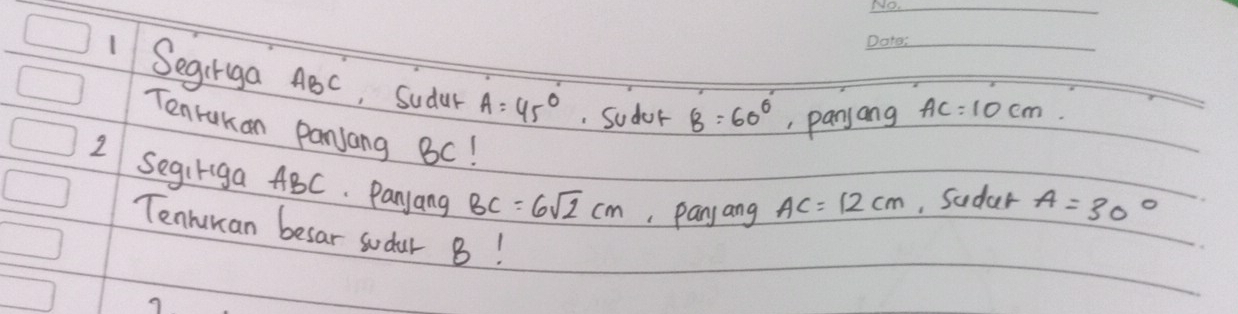 No.
Date:
1 Segitiga ABC, Sudut A = 45°, Sudut B = 60°, panjang AC = 10 cm.
Tentukan Panjang BC!
2 Segitiga ABC. Panjang BC = 6√2 cm, panjang AC = 12 cm, Sudut A = 30°
Tentukan besar sudut B!